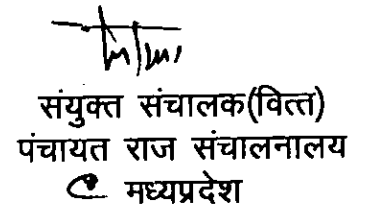 संयुक्त संचालक(वित्त)
पंचायत राज संचालनालय
मध्यप्रदेश